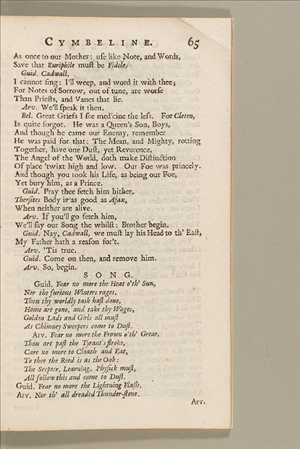 CYMBELINE. 65
As once to our Mother: use like Note, and Words,
Save that Euriphile must be Fidele.
Guid. Cadwall,
I cannot sing: I'll weep, and word it with thee;
For Notes of Sorrow, out of tune, are worse
Than Priests, and Vanes that lie.
Arv. We'll speak it then.
Bel. Great Griefs I see med'cine the less. For Cloten,
Is quite forgot. He was a Queen's Son, Boys,
And though he came our Enemy, remember
He was paid for that: The Mean, and Mighty, rotting
Together, have one Dust, yet Reverence,
The Angel of the World, doth make Distinction
Of place 'twixt high and low. Our Foe was princely.
And though you took his Life, as being our Foe,
Yet bury him, as a Prince.
Guid. Pray thee fetch him hither.
Thersites Body is as good as Ajax,
When neither are alive.
Arv. If you'll go fetch him,
We'll say our Song the whilst: Brother begin.
Guid. Nay, Cadwall, we must lay his Head to th' East,
My Father hath a reason for't.
Arv. 'Tis true.
Guid. Come on then, and remove him.
Arv. So, begin.
SONG.
Guid. Fear no more the Heat o'th' Sun,
Nor the furious Winters rages,
Thou thy worldly task hast done,
Home art gone, and take thy Wages,
Golden Lads and Girls all must
As Chimney Sweepers come to Dust.
Arv. Fear no more the Frown o'th' Great,
Thou art past the Tyrant's stroke,
Care no more to Cloath and Eat,
To thee the Reed is as the Oak:
The Scepter, Learning, Physick must,
All follow this and come to Dust.
Guid. Fear no more the Lightning Flash.
Arv. Nor th' all dreaded Thunder-stone.
Arv.